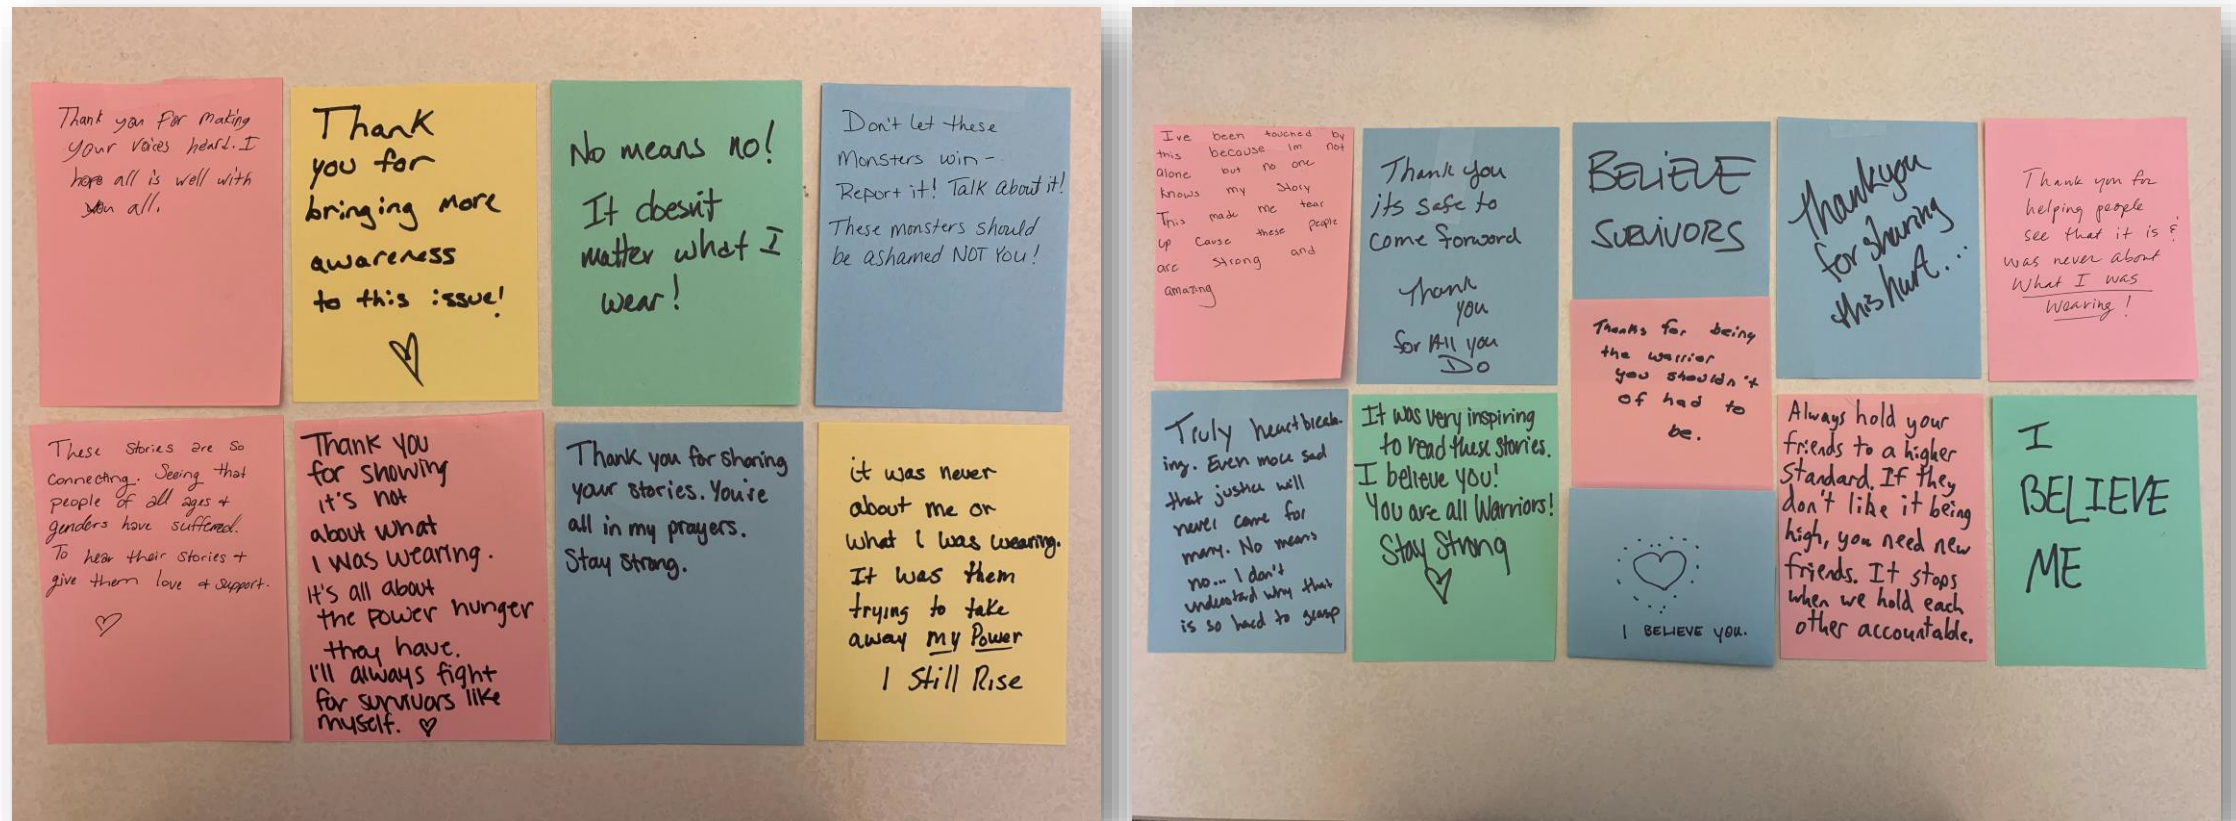 Thank you For making
your voices heard. I
hope all is well with
you all.
Thank
you for
bringing more
awareness
to this issue!
No means no!
It doesn't
matter what I
wear!
Don't let these
Monsters win -
Report it! Talk about it!
These monsters should
be ashamed NOT YOU!
These stories are so
connecting. Seeing that
people of all ages +
genders have suffered.
To hear their stories +
give them love + support.
Thank you
for showing
it's not
about what
I was wearing.
It's all about
the power hunger
they have.
I'll always fight
for survivors like
myself.
Thank you for sharing
your stories. You're
all in my prayers.
Stay strong.
it was never
about me or
what I was wearing.
It was them
trying to take
away my Power
I Still Rise
I've been touched by
this because Im not
alone but no one
knows my story
This made me tear
up cause these people
are strong and
amazing
Thank you
its safe to
come forward
Thank
you
for All you
Do
BELIEVE
SURVIVORS
Thank you
for sharing
this hurt...
Thank you for
helping people
see that it is &
was never about
What I was
wearing!
Truly heartbreak-
ing. Even more sad
that justice will
never come for
many. No means
no... I don't
understand why that
is so hard to grasp
It was very inspiring
to read these stories.
I believe you!
You are all Warriors!
Stay Strong
Thanks for being
the warrior
you shouldn't
of had to
be.
I BELIEVE YOU.
Always hold your
friends to a higher
standard. If they
don't like it being
high, you need new
friends. It stops
when we hold each
other accountable.
I
BELIEVE
ME